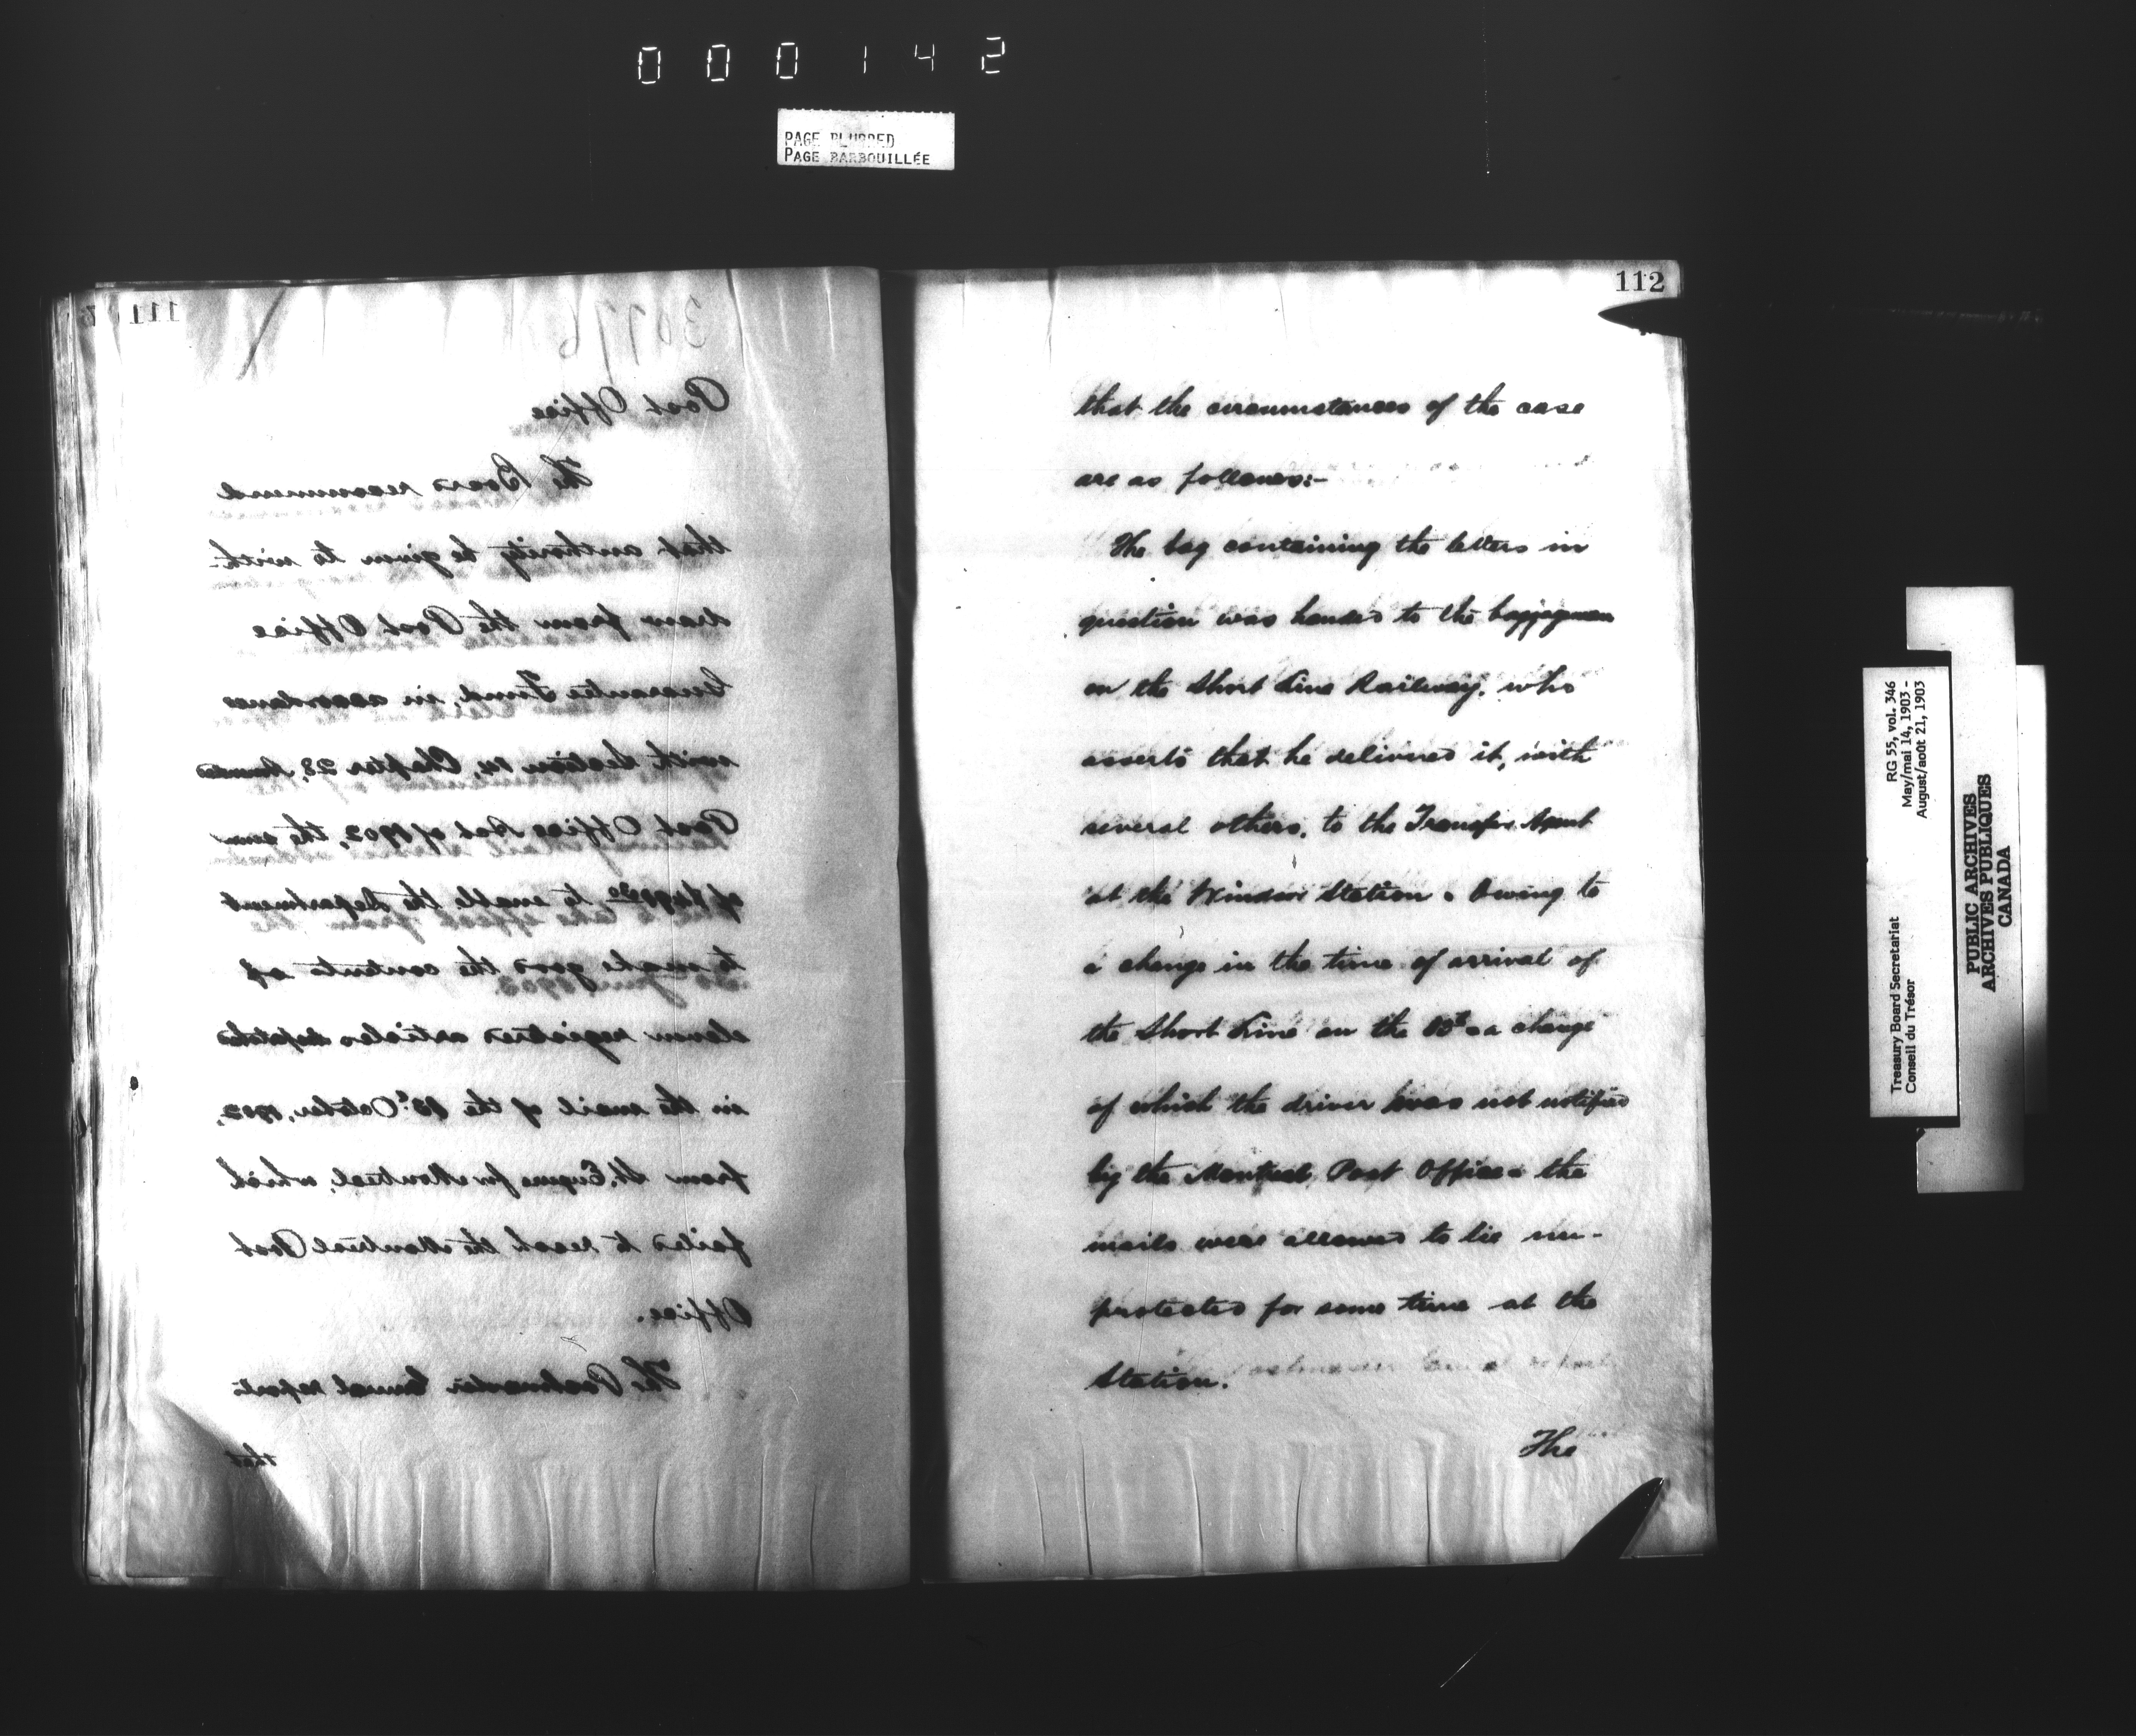 000142
PAGE BLURRED
PAGE BARBOUILLÉE
111
30776
Post Office
The Board recommend
that authority be given to with-
draw from the Post Office
Guarantee Fund, in accordance
with Section 14, Chapter 28,
Post Office Act of 1902, the sum
of to enable the Department
to make good the contents of
eleven registered articles despatched
in the mail of the 13th October, 1902,
from St. Eugene for Montreal, which
failed to reach the Montreal Post
Office.
The Postmaster General reports
that
112
that the circumstances of the case
are as follows:-
The bag containing the letters in
question was handed to the baggageman
on the Short Line Railway, who
asserts that he delivered it, with
several others, to the Transfer Agent
at the Windsor Station. Owing to
a change in the time of arrival of
the Short Line on the 13th - a change
of which the driver was not notified
by the Montreal Post Office - the
mails were allowed to lie un-
protected for some time at the
Station.
The
RG 55, vol. 346
May/mai 14, 1903 -
August/août 21, 1903
Treasury Board Secretariat
Conseil du Trésor
PUBLIC ARCHIVES
ARCHIVES PUBLIQUES
CANADA